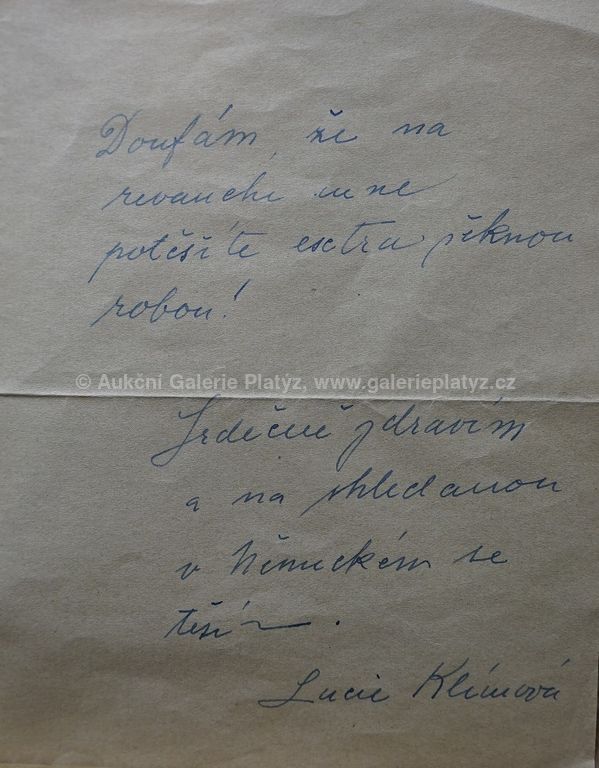 Doufám, že na
revanchi mne
potěšíte extra pěknou
robou!
© Aukční Galerie Platýz, www.galerieplatyz.cz
Srdečně zdravím
a na shledanou
v Německém se
těším.
Lucie Klímová